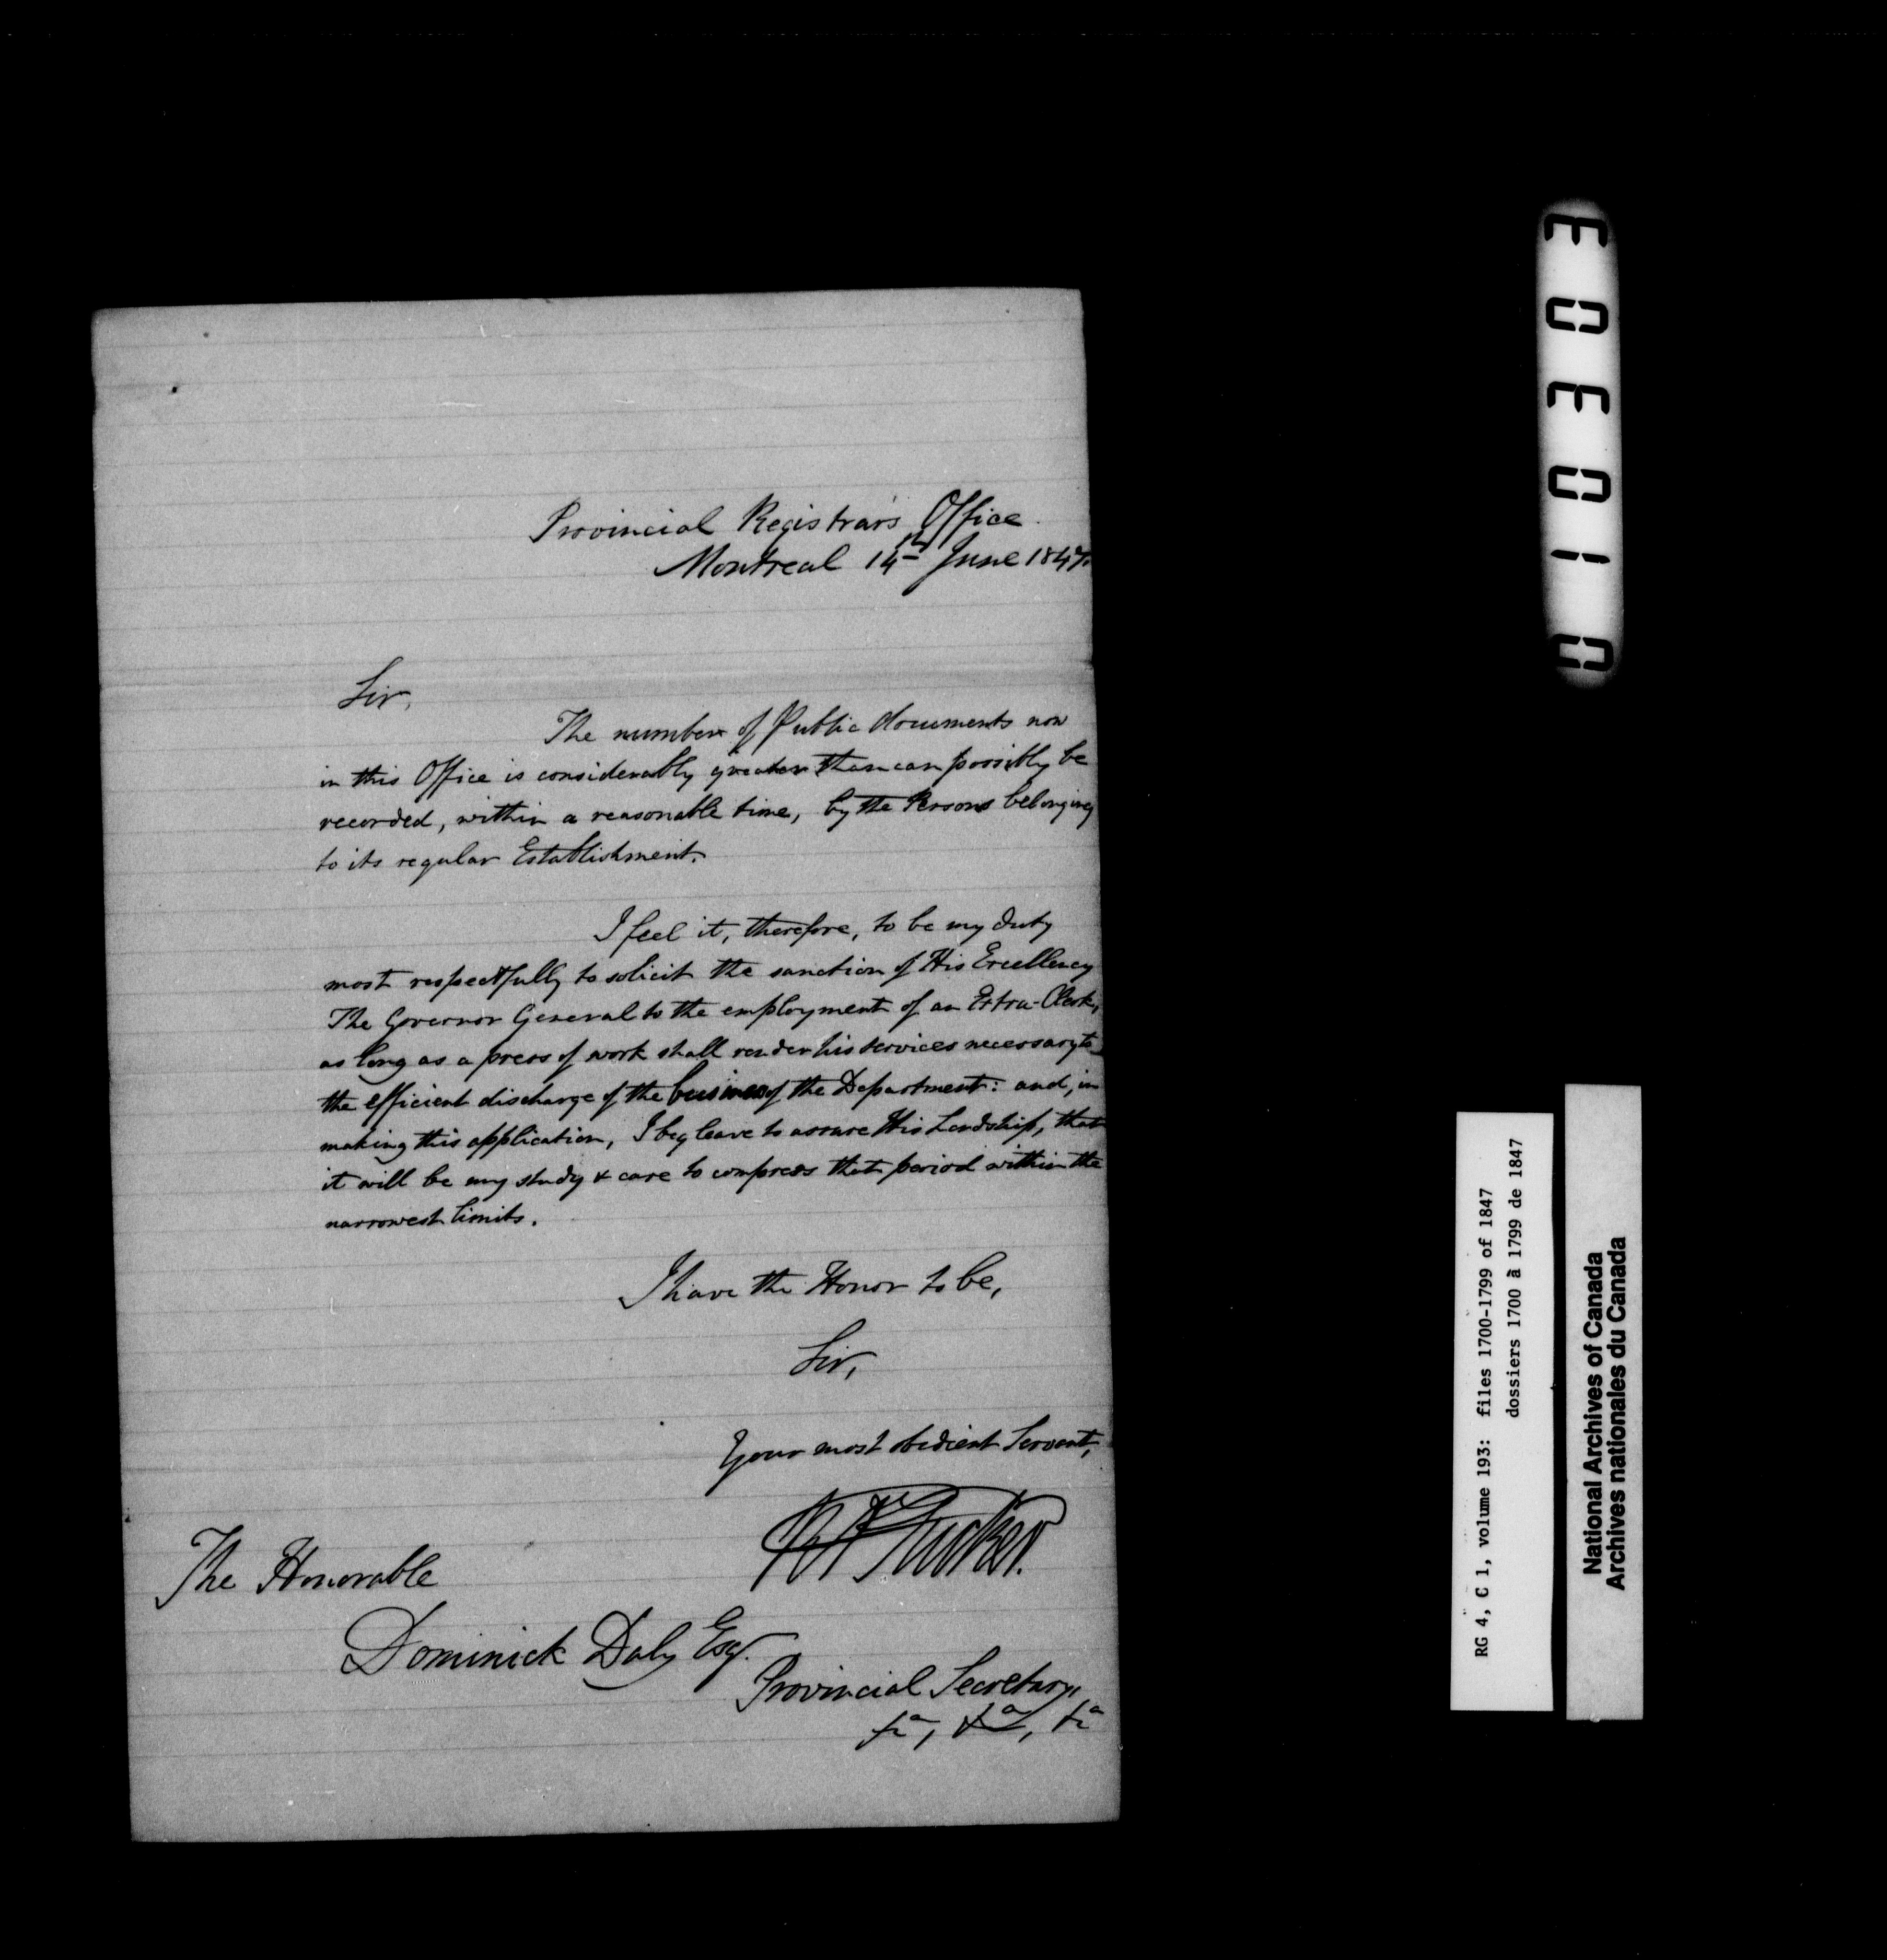 Provincial Registrar's Office.
Montreal 14th June 1847.
Sir,
The number of Public documents now
in this Office is considerably greater than can possibly be
recorded, within a reasonable time, by the Persons belonging
to its regular Establishment.
I feel it, therefore, to be my duty
most respectfully to solicit the sanction of His Excellency
The Governor General to the employment of an Extra-Clerk,
as long as a press of work shall render his services necessary to
the efficient discharge of the business of the Department: and, in
making this application, I beg leave to assure His Lordship, that
it will be my study & care to compress that period within the
narrowest limits.
I have the Honor to be,
Sir,
Your most obedient Servant,
R A Tucker.
The Honorable
Dominick Daly Esqr.
Provincial Secretary,
&a, &a, &a
010303
RG 4, C 1, volume 193: files 1700-1799 of 1847
dossiers 1700 à 1799 de 1847
National Archives of Canada
Archives nationales du Canada